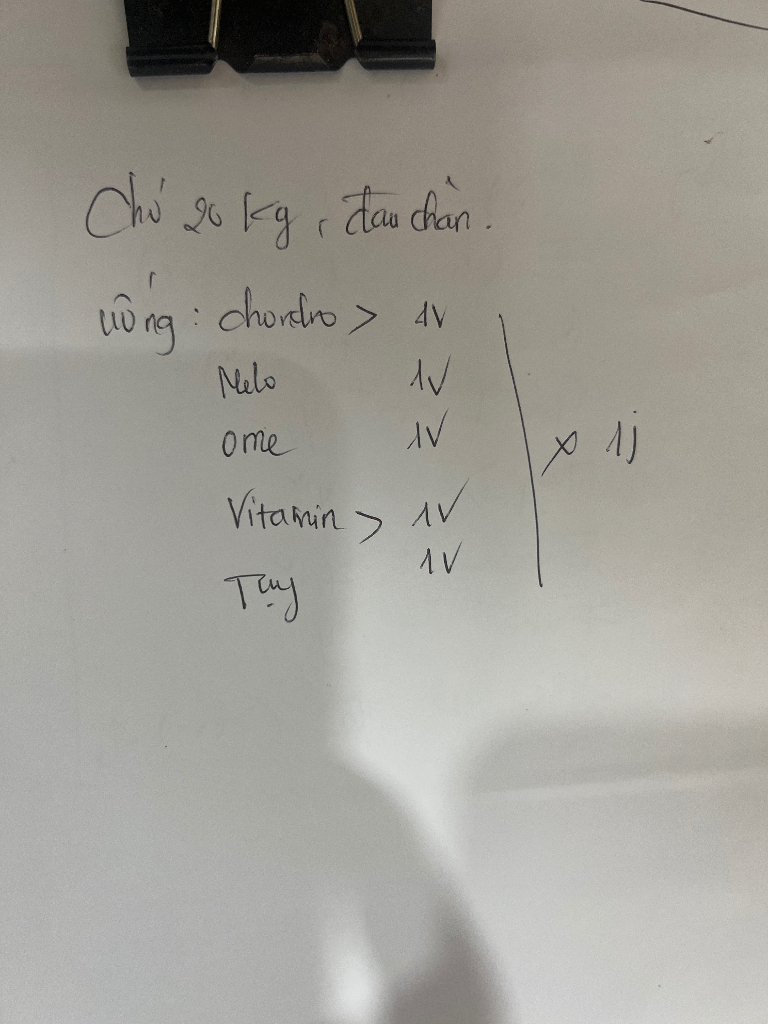 Chó 20 kg, đau chân.
uống: chondro > 1V
Melo 1V
ome 1V
Vitamin > 1V
1V
x 1j